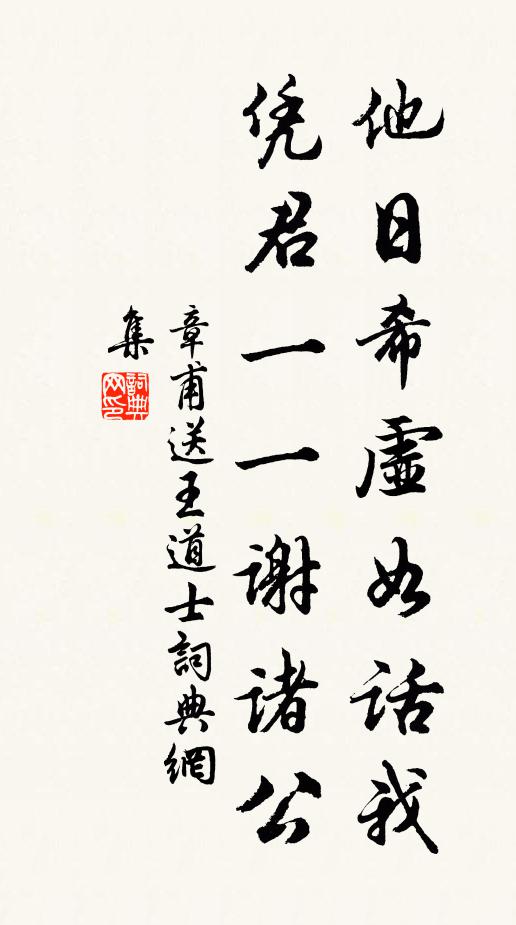 他日希虚如话我
凭君一一谢诸公
章甫送王道士詞典網
集
詞典
网印